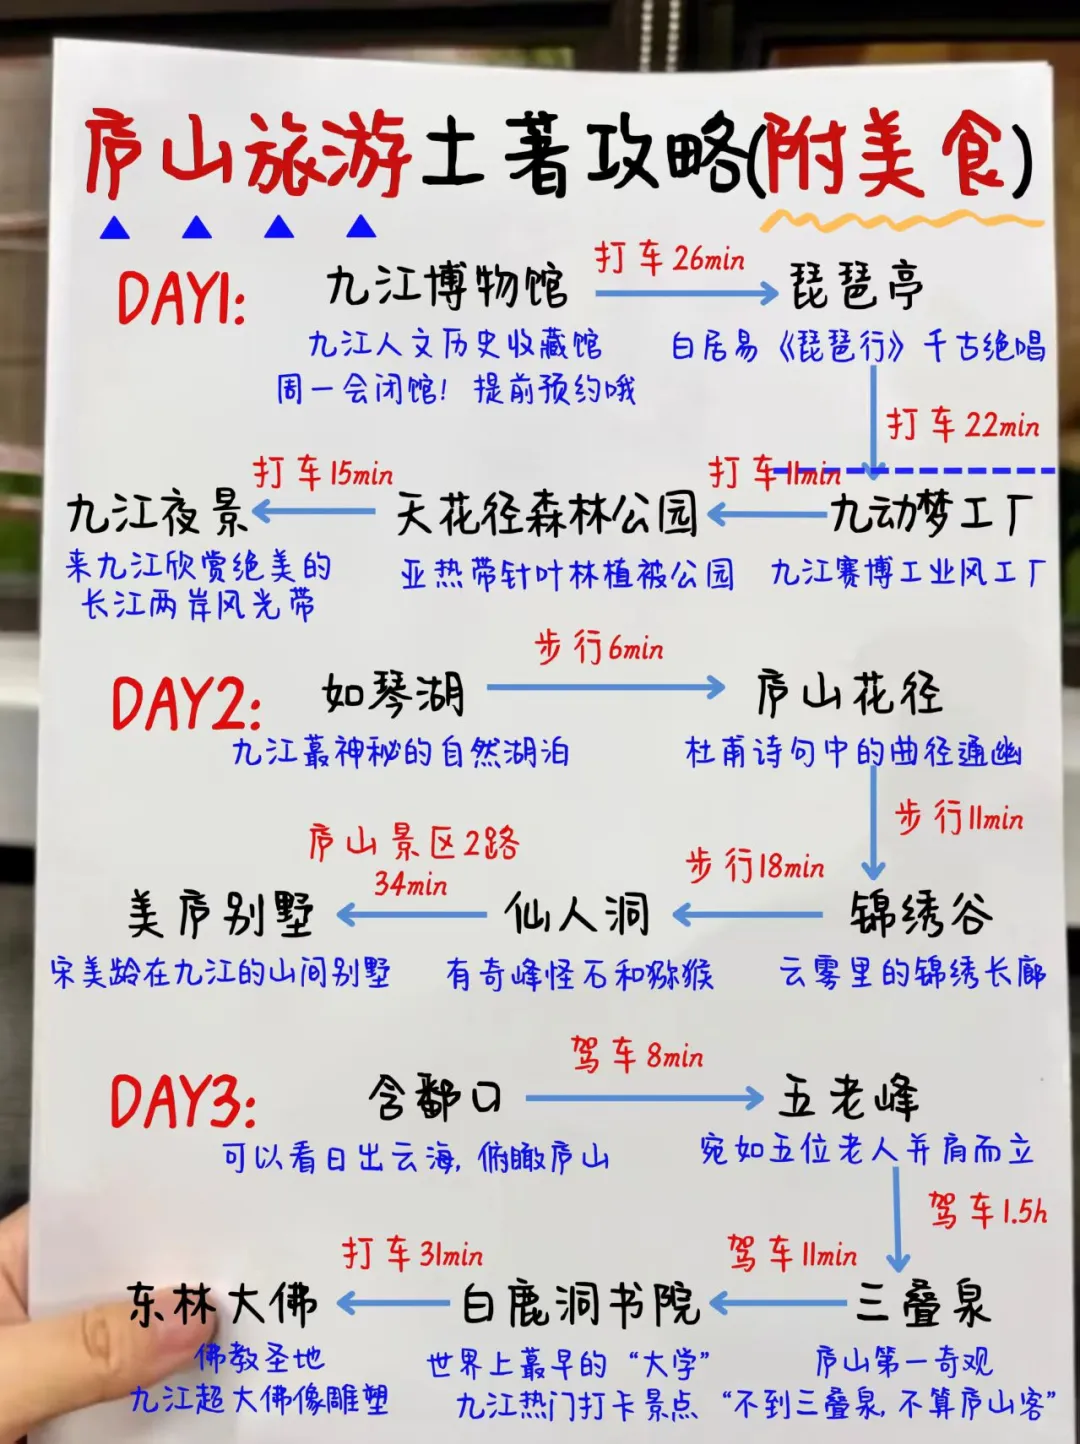 庐山旅游土著攻略(附美食)
DAY1:
九江博物馆
打车26min
琵琶亭
九江人文历史收藏馆
周一会闭馆！提前预约哦
白居易《琵琶行》千古绝唱
打车22min
九江夜景
打车15min
天花径森林公园
打车11min
九动梦工厂
来九江欣赏绝美的
长江两岸风光带
亚热带针叶林植被公园
九江赛博工业风工厂
DAY2:
如琴湖
步行6min
庐山花径
九江最神秘的自然湖泊
杜甫诗句中的曲径通幽
步行11min
美庐别墅
庐山景区2路
34min
仙人洞
步行18min
锦绣谷
宋美龄在九江的山间别墅
有奇峰怪石和猕猴
云雾里的锦绣长廊
DAY3:
含鄱口
驾车8min
五老峰
可以看日出云海,俯瞰庐山
宛如五位老人并肩而立
驾车1.5h
东林大佛
打车31min
白鹿洞书院
驾车11min
三叠泉
佛教圣地
九江超大佛像雕塑
世界上最早的“大学”
九江热门打卡景点
庐山第一奇观
“不到三叠泉,不算庐山客”